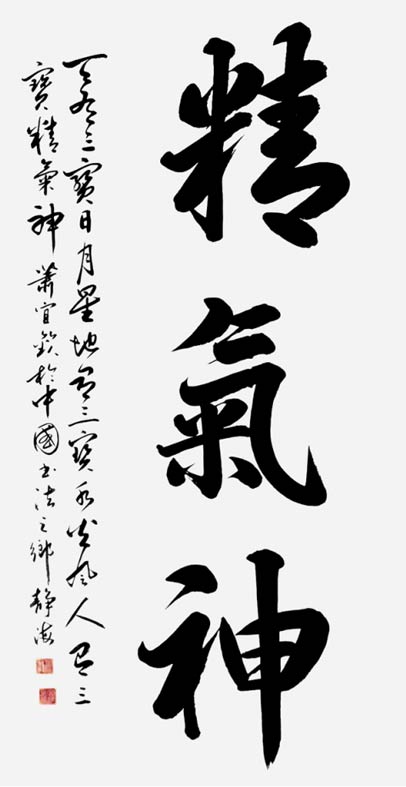 精氣神
天有三寶日月星地有三寶水火風人有三
寶精氣神 蕭宜欽於中國書法之鄉靜海